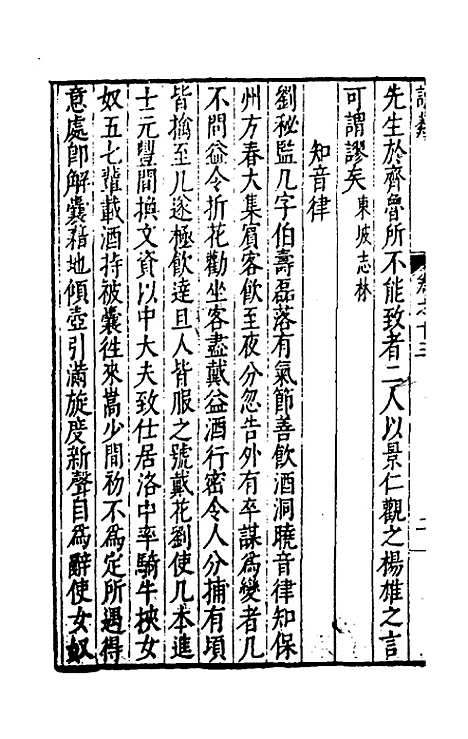 先生於齊魯所不能致者二人以景仁觀之楊雄之言
可謂謬矣東坡志林
知音律
劉秘監几字伯壽磊落有氣節善飲酒洞曉音律知保
州方春大集賓客飲至夜分忽告外有卒謀為變者几
不問益令折花勸坐客盡戴益酒行密令人分捕有頃
皆擒至几遂極飲達旦人皆服之號戴花劉使几本進
士元豐間換文資以中大夫致仕居洛中率騎牛挾女
奴五七輩載酒持被囊徃來嵩少間初不為定所遇得
意處即解囊藉地傾壺引滿旋度新聲自為辭使女奴
卷之十三